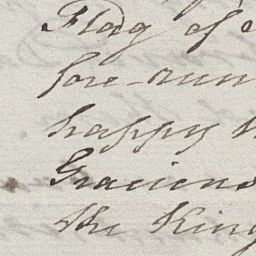 Flag of
fore-run
happy
Gracious
the King